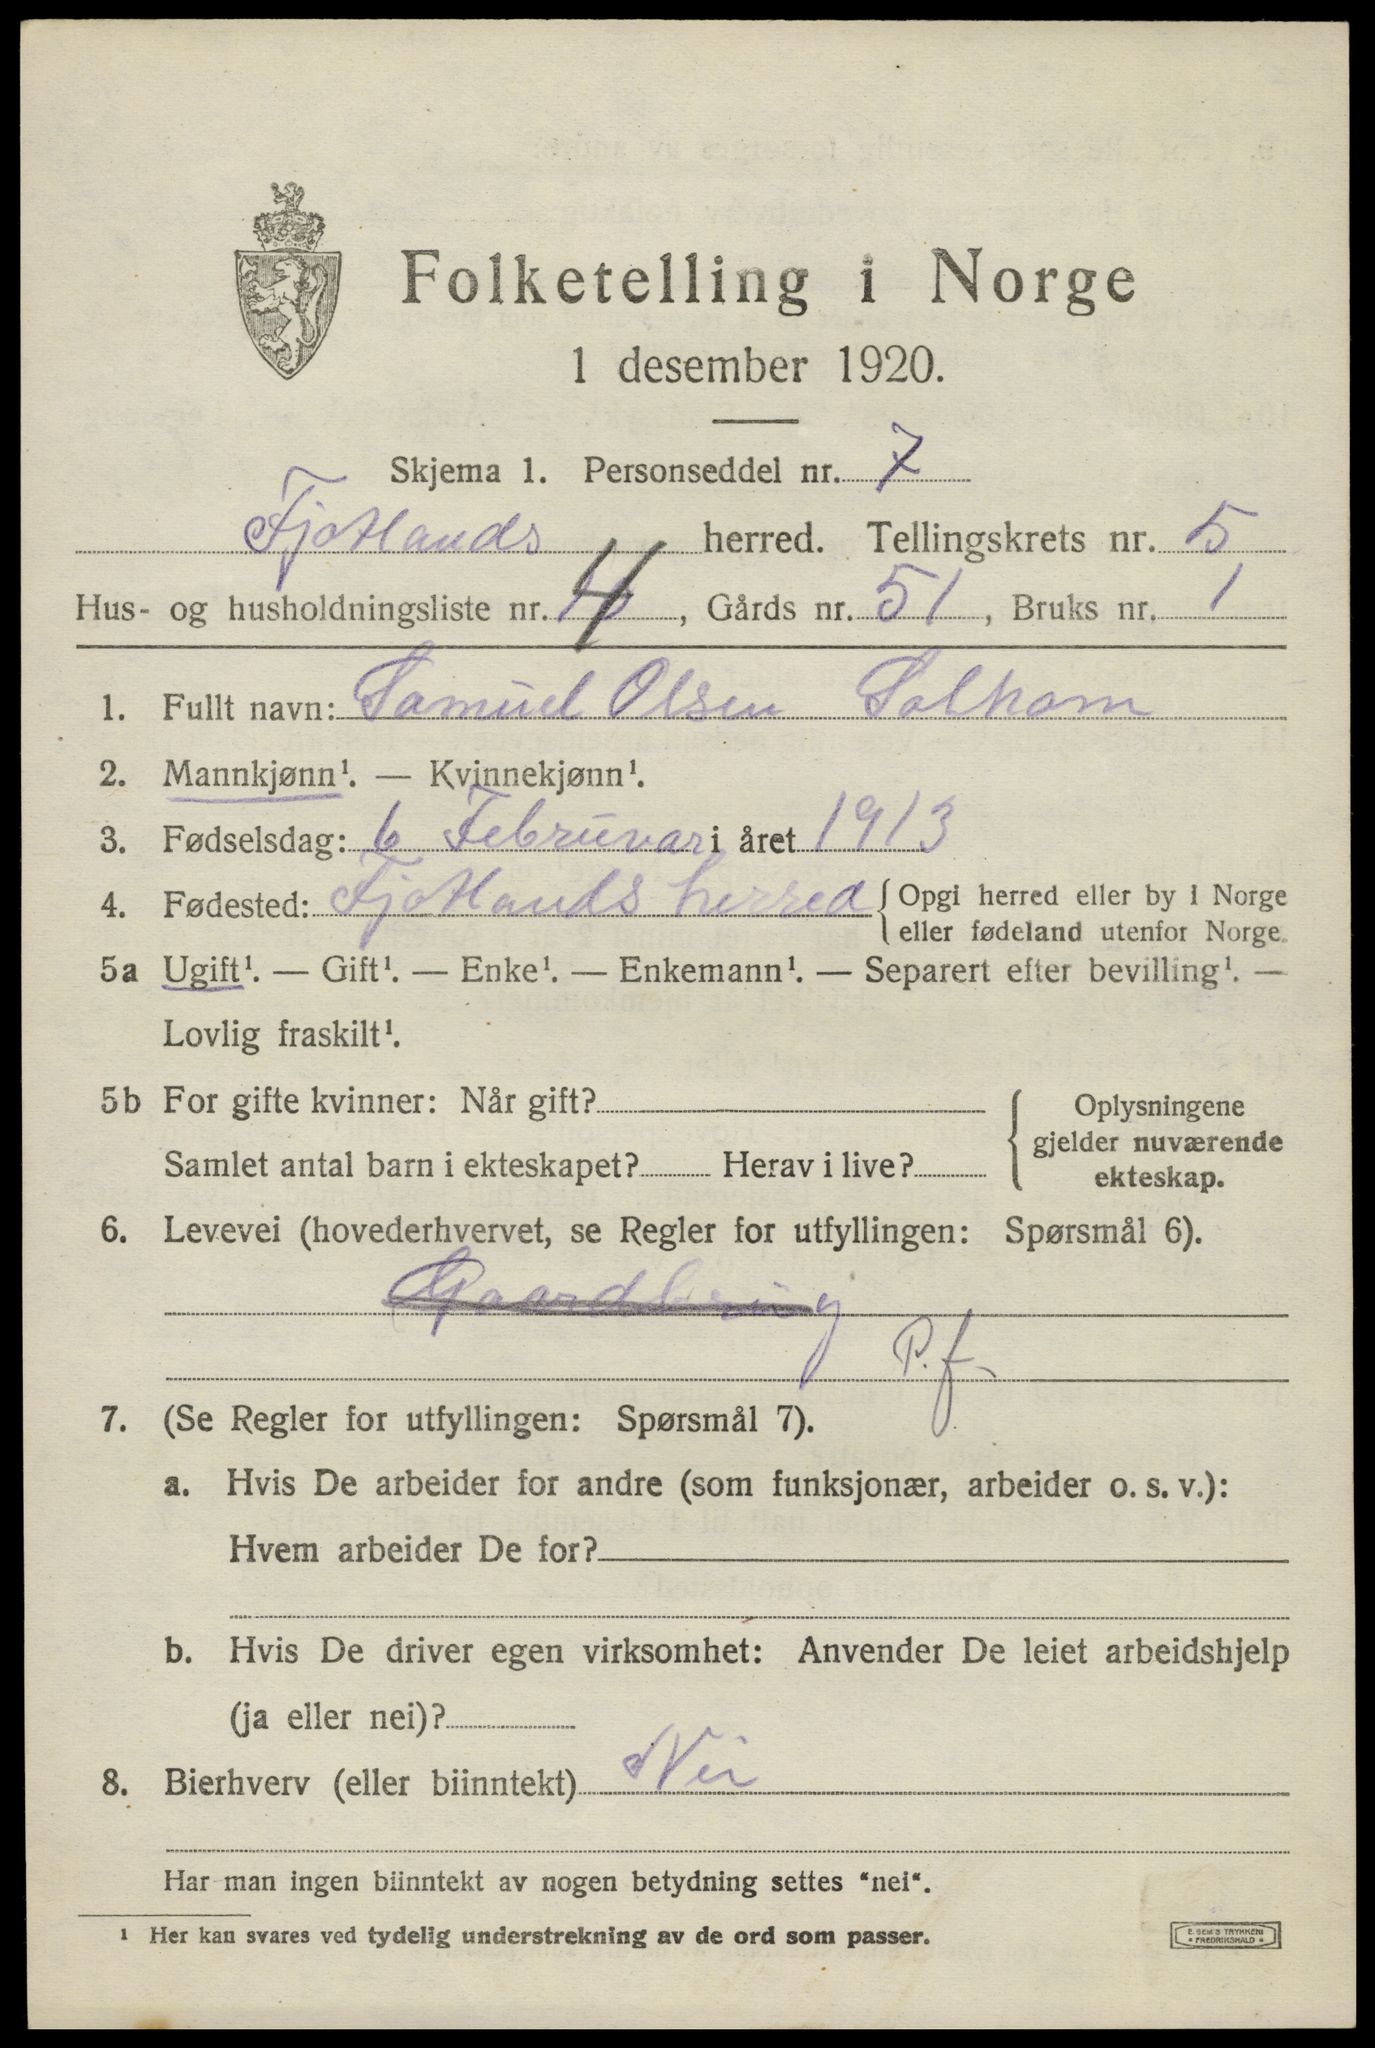 Folketelling i Norge
1 desember 1920.
Skjema 1. Personseddel nr. 7
Fjotlands herred. Tellingskrets nr. 5
Hus- og husholdningsliste nr. 4, Gårds nr. 51, Bruks nr. 1
1. Fullt navn: Samuel Olsen Solhom
2. Mannkjønn¹. — Kvinnekjønn¹.
3. Fødselsdag: 6 Februvar i året 1913
4. Fødested: Fjotlands herred { Opgi herred eller by i Norge
eller fødeland utenfor Norge.
5a Ugift¹. — Gift¹. — Enke¹. — Enkemann¹. — Separert efter bevilling¹. —
Lovlig fraskilt¹.
5b For gifte kvinner: Når gift?
Samlet antal barn i ekteskapet? Herav i live?
{ Oplysningene
gjelder nuværende
ekteskap.
6. Levevei (hovederhvervet, se Regler for utfyllingen: Spørsmål 6).
P.f.
7. (Se Regler for utfyllingen: Spørsmål 7).
a. Hvis De arbeider for andre (som funksjonær, arbeider o. s. v.):
Hvem arbeider De for?
b. Hvis De driver egen virksomhet: Anvender De leiet arbeidshjelp
(ja eller nei)?
8. Bierhverv (eller biinntekt) Nei
Har man ingen biinntekt av nogen betydning settes "nei".
¹ Her kan svares ved tydelig understrekning av de ord som passer.
E. SEM'S TRYKKERI
FREDRIKSHALD